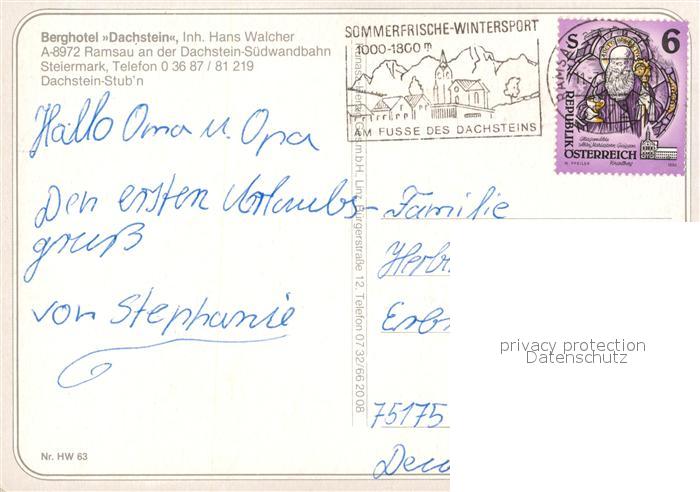 Berghotel »Dachstein«, Inh. Hans Walcher
A-8972 Ramsau an der Dachstein-Südwandbahn
Steiermark, Telefon 0 36 87 / 81 219
Dachstein-Stub'n
SOMMERFRISCHE-WINTERSPORT
1000-1800 m
AM FUSSE DES DACHSTEINS
RAMSAU
S 6
REPUBLIK
ÖSTERREICH
Hallo Oma u. Opa
Den ersten Urlaubs-
gruß
von Stephanie
Familie
75175
Linz, Bürgerstraße 12, Telefon 07 32/66 20 08
privacy protection
Datenschutz
Nr. HW 63